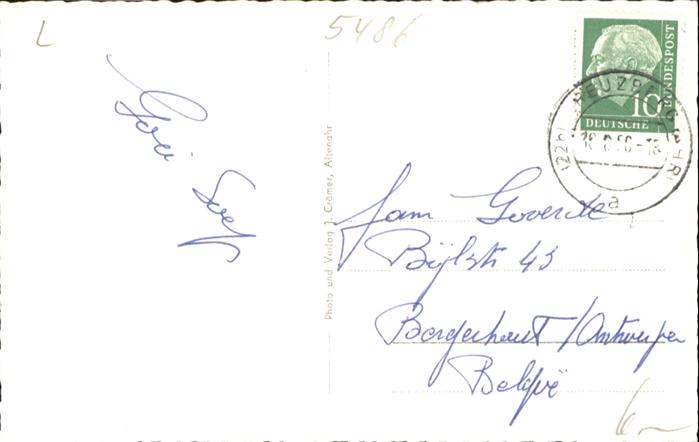 L
5486
Photo und Verlag J. Crämer, Altenahr
DEUTSCHE
BUNDESPOST
10
KREUZBERG (AHR)
(22b)
-18
a
Fam Goverde
Bijlstr 43
Borgerhout / Antwerpen
België